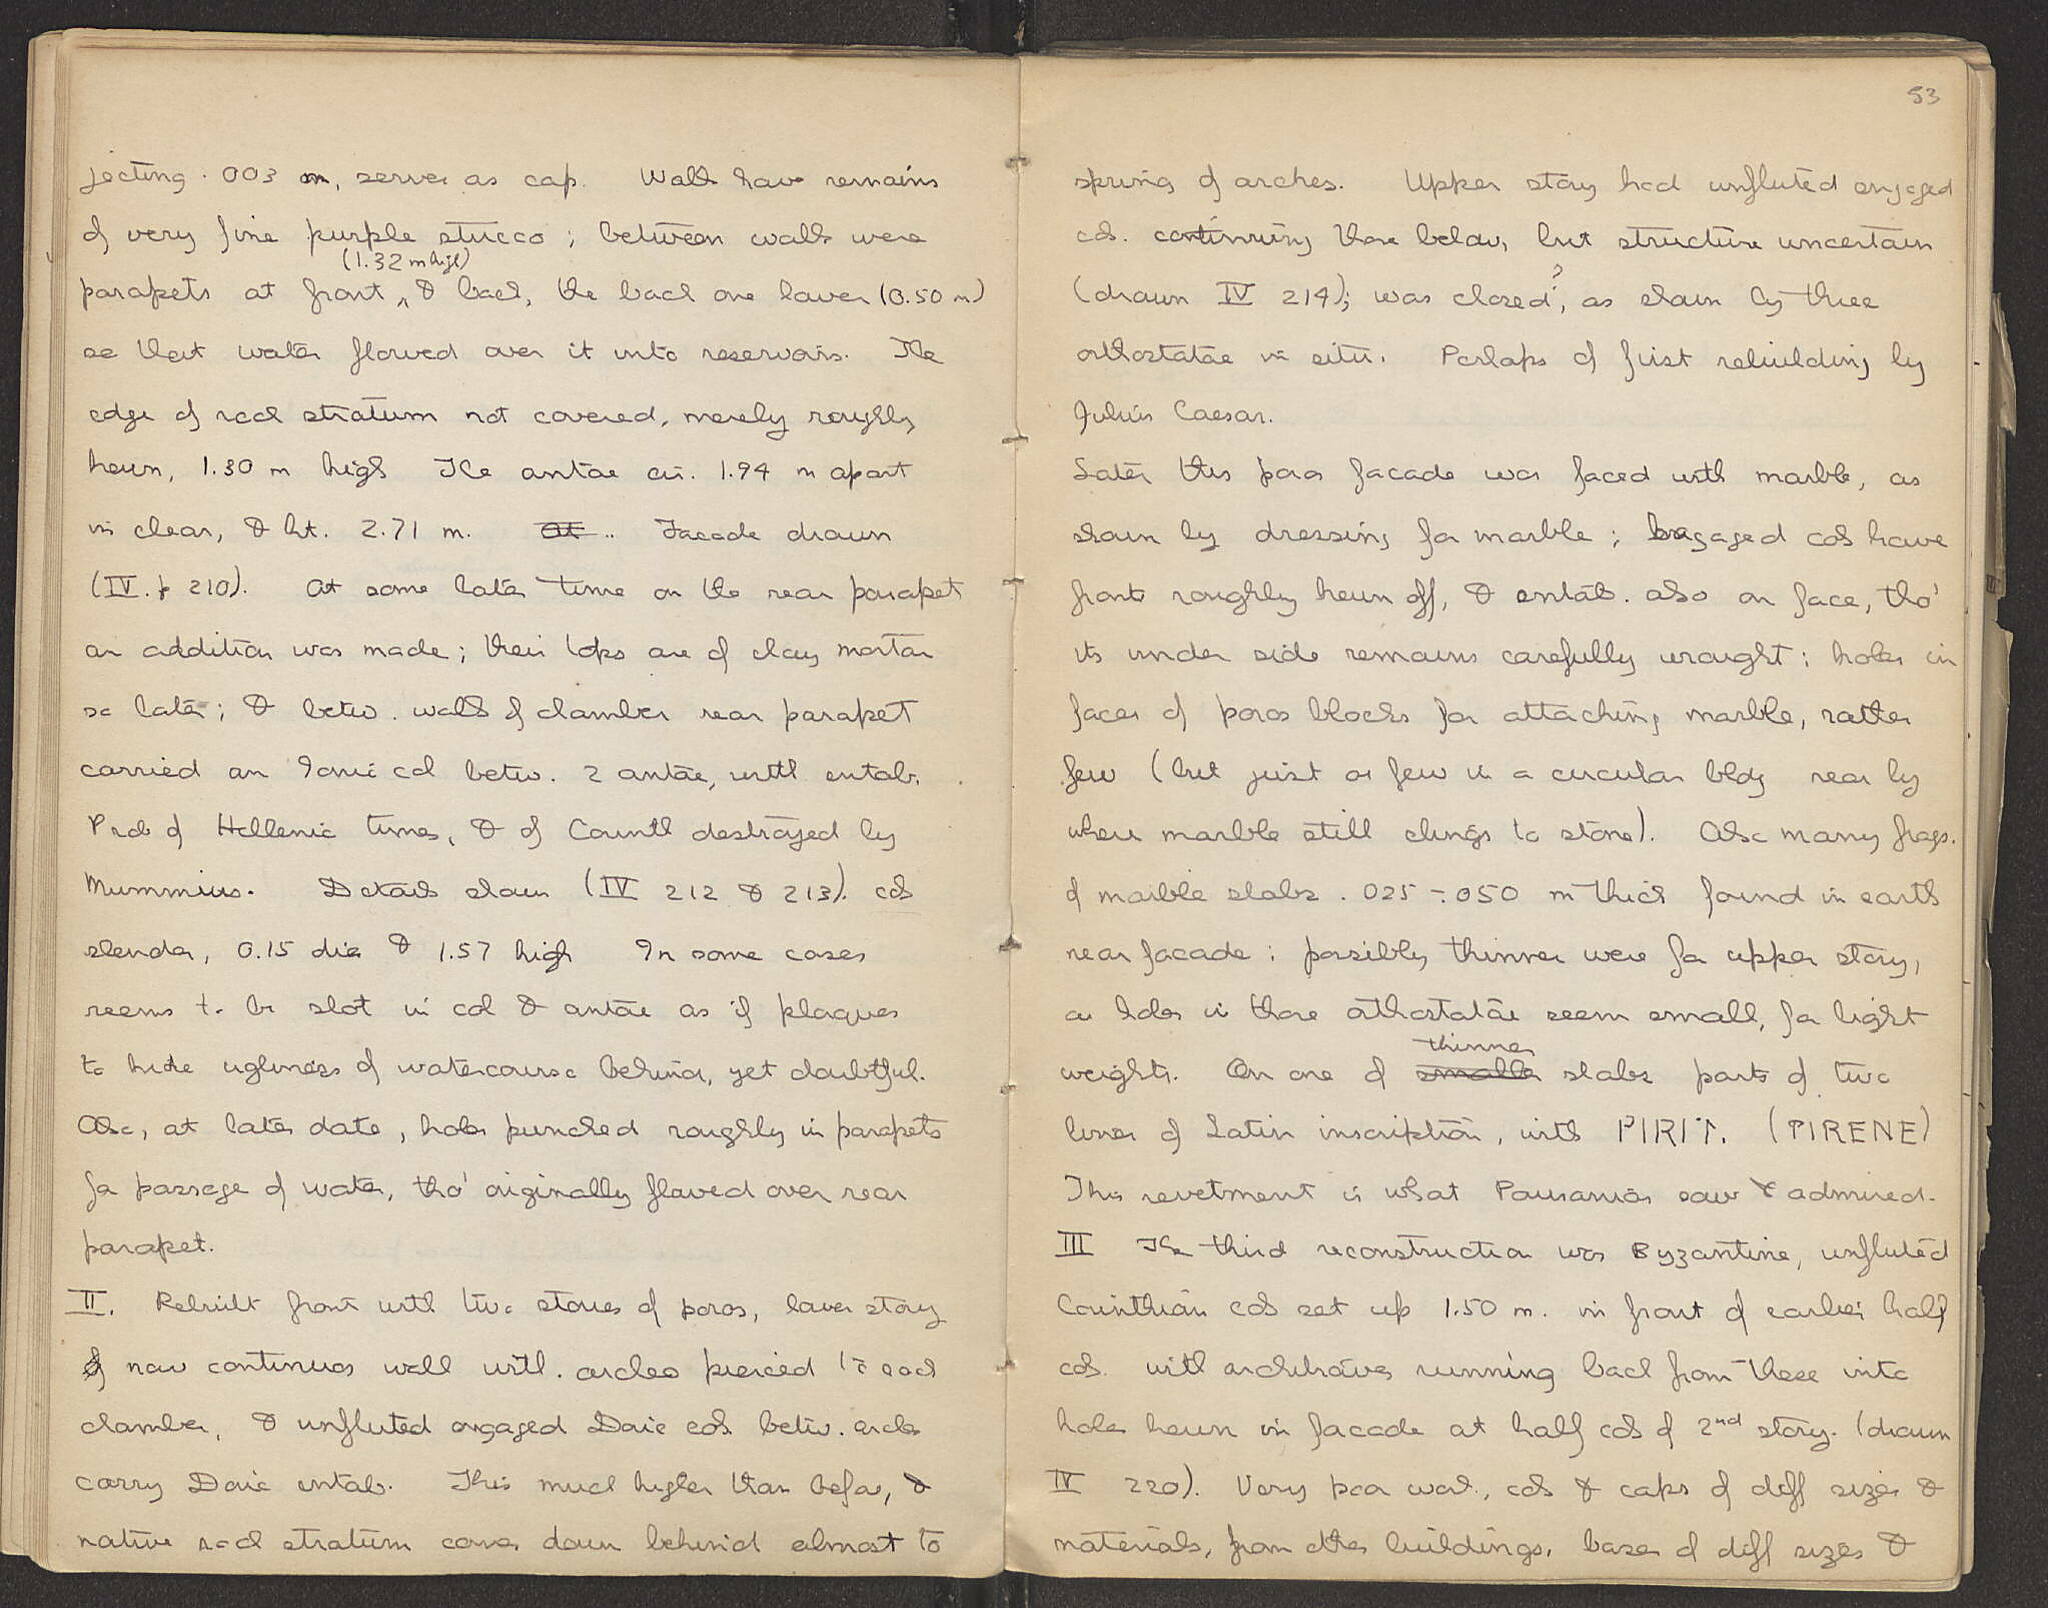 jecting .003 m, serves as cap. Walls have remains
of very fine purple stucco; between walls were
(1.32 m high)
parapets at front ^ & back, the back one lower (0.50 m)
so that water flowed over it into reservoirs. The
edge of rock stratum not covered, merely roughly
hewn, 1.30 m high The antae cir. 1.94 m apart
in clear, & ht. 2.71 m. At .. Facade drawn
(IV. p 210). At some later time on the rear parapet
an addition was made; their tops are of clay mortar
so later; & betw. walls of chamber rear parapet
carried an Ionic col betw. 2 antae, with entab.
Prob of Hellenic times, & of Corinth destroyed by
Mummius. Details shown (IV 212 & 213). cols
slender, 0.15 dia & 1.57 high In some cases
seems to be slot in col & antae as if plaques
to hide ugliness of watercourse behind, yet doubtful.
Also, at later date, holes punched roughly in parapets
for passage of water, tho' originally flowed over rear
parapet.
II. Rebuilt front with two stories of poros, lower story
of now continuous wall with arches pierced to each
chamber, & unfluted engaged Doric cols betw. arches
carry Doric entab. This much higher than before, &
native rock stratum comes down behind almost to
53
spring of arches. Upper story had unfluted engaged
cols. continuing those below, but structure uncertain
(drawn IV 214); was closed?, as shown by three
orthostatae in situ. Perhaps of first rebuilding by
Julius Caesar.
Later this poros facade was faced with marble, as
shown by dressing for marble; engaged cols have
fronts roughly hewn off, & entab. also on face, tho'
its under side remains carefully wrought; holes in
faces of poros blocks for attaching marble, rather
few (but just as few in a circular bldg near by
where marble still clings to stone). Also many frags.
of marble slabs .025-.050 m thick found in earth
near facade; possibly thinner were for upper story,
as holes in those orthostatae seem small, for light
thinner
weights. On one of smaller slabs parts of two
lines of Latin inscription, with PIRI . (PIRENE)
This revetment is what Pausanias saw & admired.
III The third reconstruction was Byzantine, unfluted
Corinthian cols set up 1.50 m. in front of earlier half
cols. with architraves running back from these into
holes hewn in facade at half cols of 2nd story. (drawn
IV 220). Very poor work, cols & caps of diff sizes &
materials, from other buildings, bases of diff sizes &